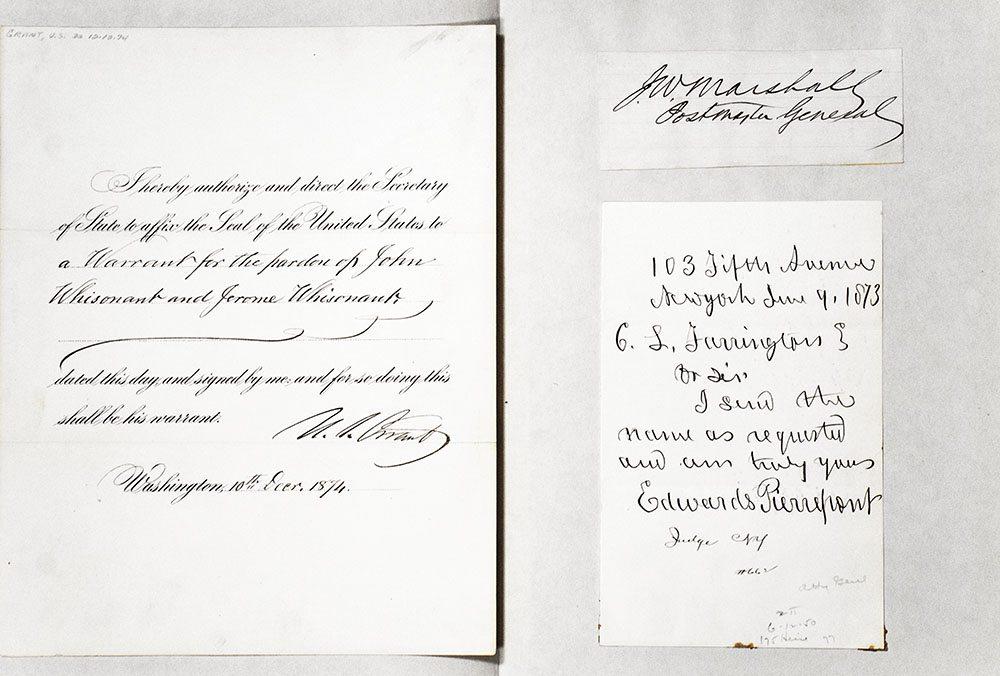 GRANT, U.S. DS 12.10.74
I hereby authorize and direct the Secretary
of State to affix the Seal of the United States to
a Warrant for the pardon of John
Whisonant and Jerome Whisonant
dated this day, and signed by me: and for so doing this
shall be his warrant.
U. S. Grant
Washington, 10th Decr. 1874.
J. W. Marshall
Postmaster General
103 Fifth Avenue
New york June 9, 1873
C. L. Farrington E
Dr sir
I send the
name as requested
and am truly yours
Edwards Pierrepont
Judge NY
#662
Atty Genl
6-12-50